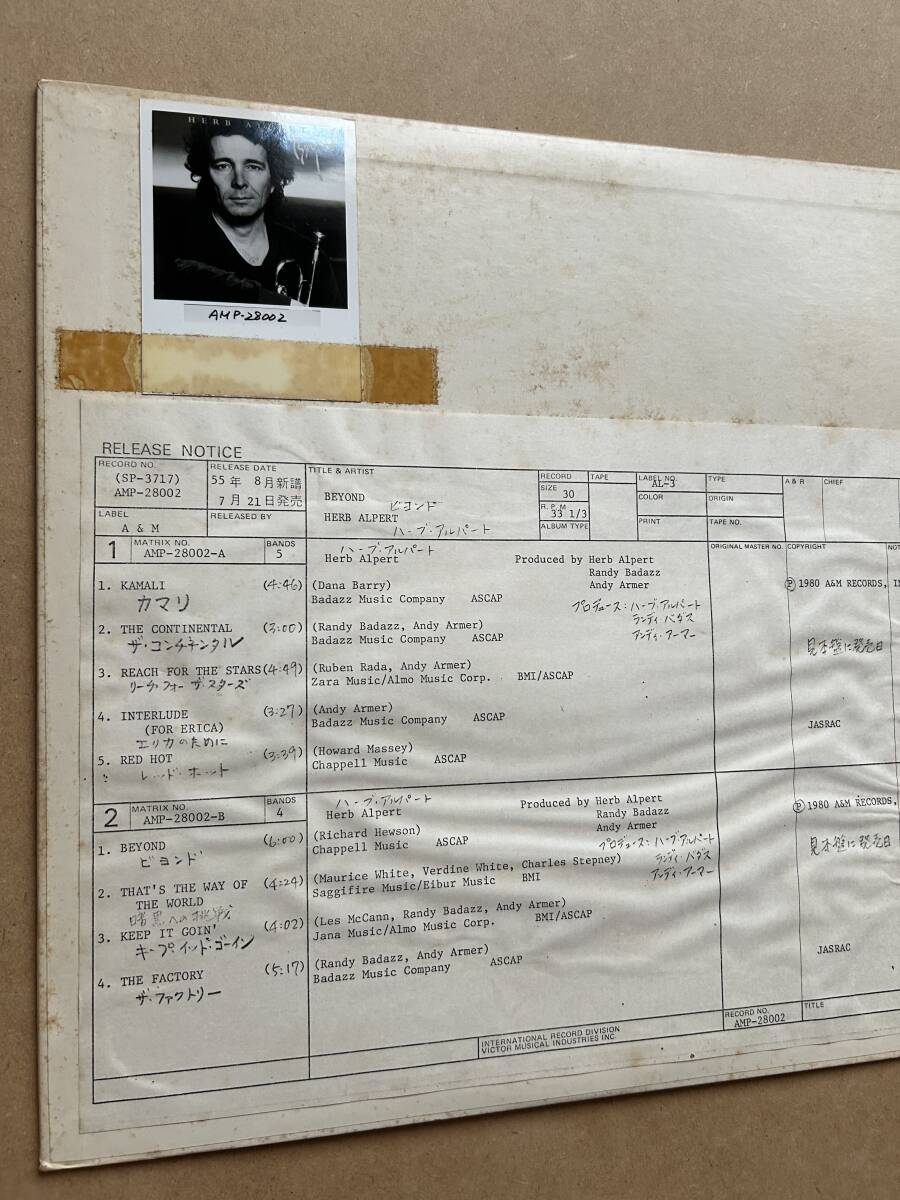 HERB ALPERT
AMP-28002
RELEASE NOTICE
RECORD NO.
(SP-3717)
AMP-28002
RELEASE DATE
55年 8月新譜
7月21日発売
TITLE & ARTIST
BEYOND
ビヨンド
HERB ALPERT
ハーブ・アルパート
RECORD
TAPE
LABEL NO.
AL-3
TYPE
A & R
CHIEF
SIZE 30
COLOR
ORIGIN
R.P.M
33 1/3
ALBUM TYPE
PRINT
TAPE NO.
LABEL
A & M
RELEASED BY
1
MATRIX NO.
AMP-28002-A
BANDS
5
ハーブ・アルパート
Herb Alpert
Produced by Herb Alpert
Randy Badazz
Andy Armer
プロデュース:ハーブ・アルパート
ランディ・バダス
アンディ・アーマー
ORIGINAL MASTER NO.
COPYRIGHT
NOT
Ⓟ 1980 A&M RECORDS, IN
見本盤に発売日
JASRAC
1. KAMALI (4:46)
カマリ
(Dana Barry)
Badazz Music Company ASCAP
2. THE CONTINENTAL (3:00)
ザ・コンチネンタル
(Randy Badazz, Andy Armer)
Badazz Music Company ASCAP
3. REACH FOR THE STARS (4:49)
リーチ・フォー・ザ・スターズ
(Ruben Rada, Andy Armer)
Zara Music/Almo Music Corp. BMI/ASCAP
4. INTERLUDE (3:27)
(FOR ERICA)
エリカのために
(Andy Armer)
Badazz Music Company ASCAP
5. RED HOT (3:39)
レッド・ホット
(Howard Massey)
Chappell Music ASCAP
2
MATRIX NO.
AMP-28002-B
BANDS
4
ハーブ・アルパート
Herb Alpert
Produced by Herb Alpert
Randy Badazz
Andy Armer
プロデュース:ハーブ・アルパート
ランディ・バダス
アンディ・アーマー
Ⓟ 1980 A&M RECORDS,
見本盤に発売日
JASRAC
1. BEYOND (6:00)
ビヨンド
(Richard Hewson)
Chappell Music ASCAP
2. THAT'S THE WAY OF (4:24)
THE WORLD
暗黒への挑戦
(Maurice White, Verdine White, Charles Stepney)
Saggifire Music/Eibur Music BMI
3. KEEP IT GOIN' (4:02)
キープ・イット・ゴーイン
(Les McCann, Randy Badazz, Andy Armer)
Jana Music/Almo Music Corp. BMI/ASCAP
4. THE FACTORY (5:17)
ザ・ファクトリー
(Randy Badazz, Andy Armer)
Badazz Music Company ASCAP
INTERNATIONAL RECORD DIVISION
VICTOR MUSICAL INDUSTRIES INC.
RECORD NO.
AMP-28002
TITLE